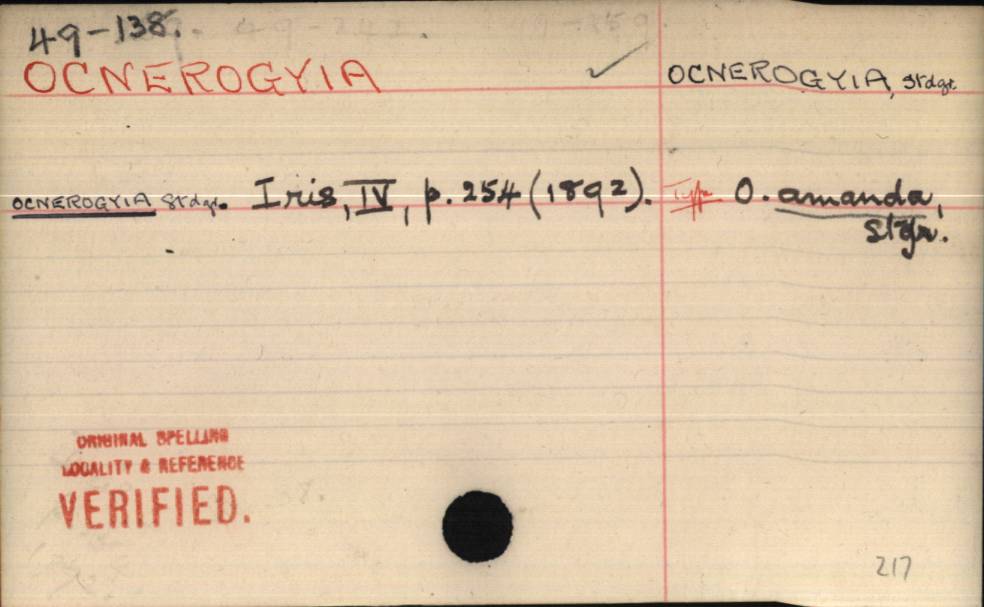 49-138.
OCNEROGYIA
OCNEROGYIA, Stdgr.
OCNEROGYIA Stdgr. Iris, IV, p. 254 (1892). Type O. amanda,
Stgr.
ORIGINAL SPELLING
LOCALITY & REFERENCE
VERIFIED.
217